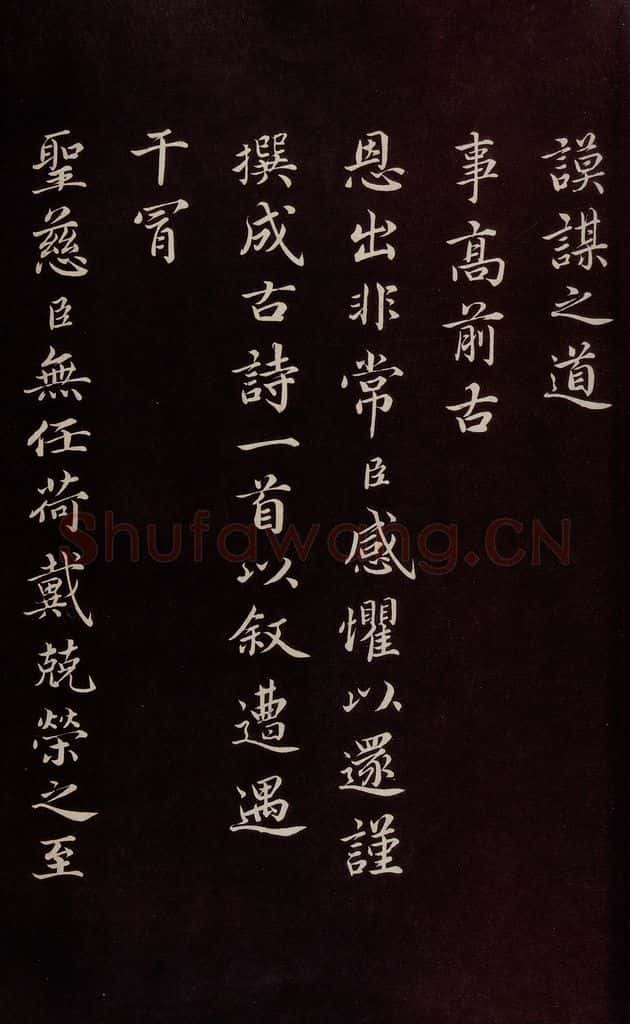 謨謀之道
事髙前古
恩出非常臣感懼以還謹
撰成古詩一首以叙遭遇
干冒
聖慈臣無任荷戴兢榮之至
Shufawang.CN